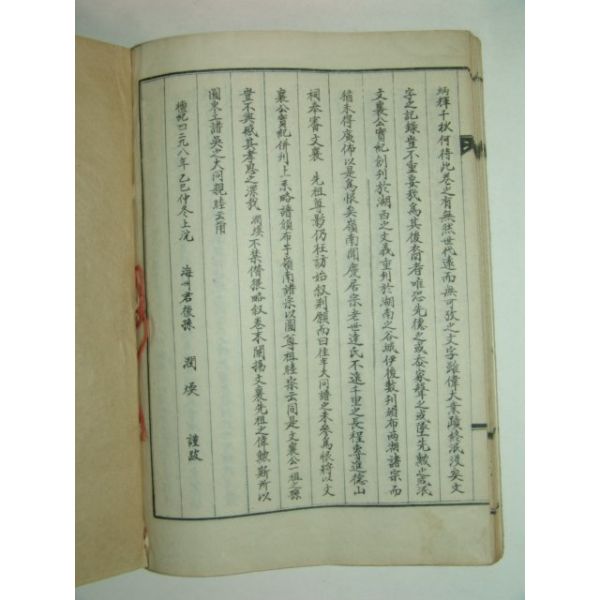 炳輝千秋何待此卷之有無然世代遠而無可攷之文字雖偉大業蹟終泯没矣文
字之記錄豈不重要哉爲其後裔者唯恐先德之或忝家聲之或墜先勳之或泯
文襄公實紀創刊於湖西之文義重刊於湖南之谷城伊後數刊頒布两湖諸宗而
猶未得廣佈以是爲恨矣嶺南聞慶居宗老世達氏不遠千里之長程專進德山
祠奉審文襄 先祖尊影仍枉訪始叙刊願而曰往年大同譜之未參爲恨將以文
襄公實紀併刊上系略譜頒布于嶺南諸宗以圖尊祖睦宗云同是文襄公一祖之孫
豈不與感其孝思之深哉 潤煐不禁僭猥略叙卷末闡揚文襄先祖之偉勲斯所以
圖來之譜吳之大同親睦云甭
檀紀四二九八年乙巳仲冬上浣 海州君後孫 潤煐 謹跋